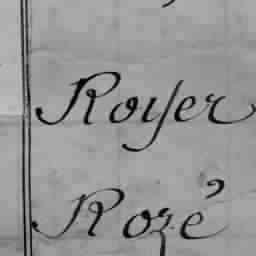 Royer
Rozé